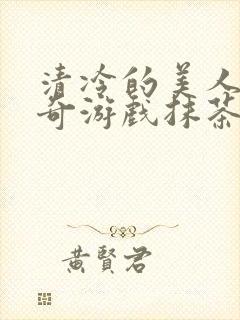 清冷的美人
奇游戏抹茶
黄賢君